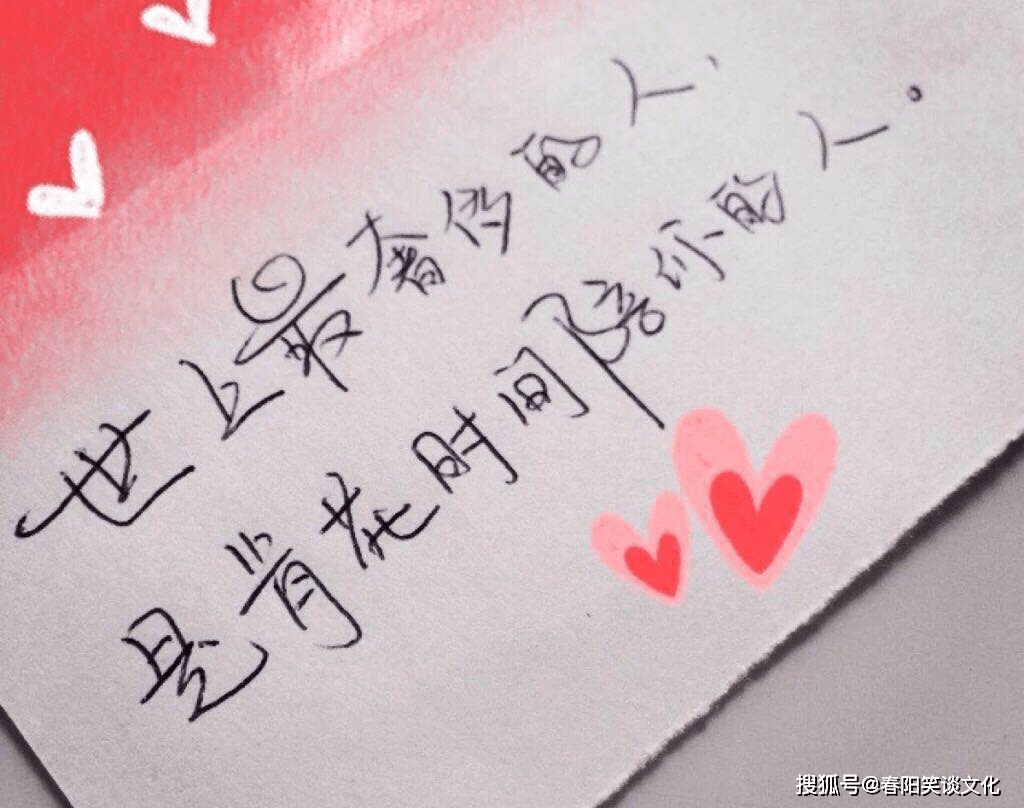 世上最奢侈的人，
是肯花时间陪你的人。
搜狐号@春阳笑谈文化